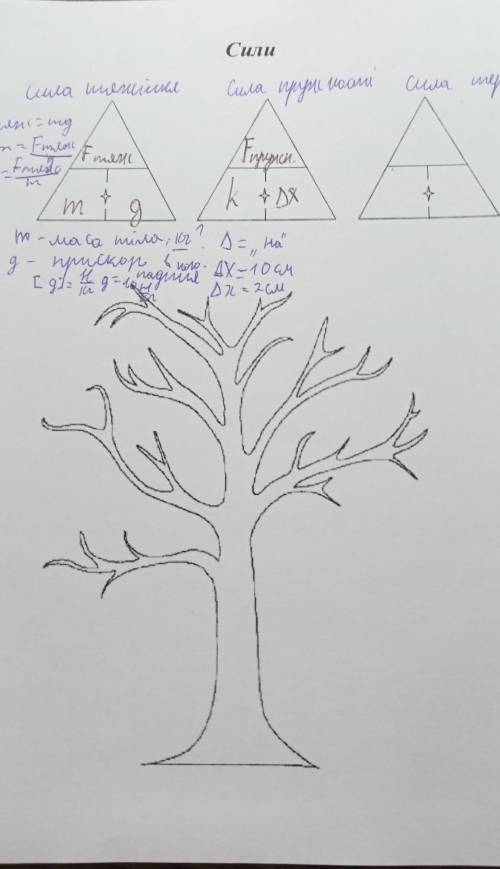 Сили
Сила тяжіння
Сила пружності
Сила тер
яж = mg
m = Fтяж / g
= Fтяж / m
Fтяж
m g
Fпружн.
k Δx
m - маса тіла, кг?
Δ = „на"
g - прискор. падіння
Δx = 10 см
[g] = Н/кг g =
Δx = 2 см